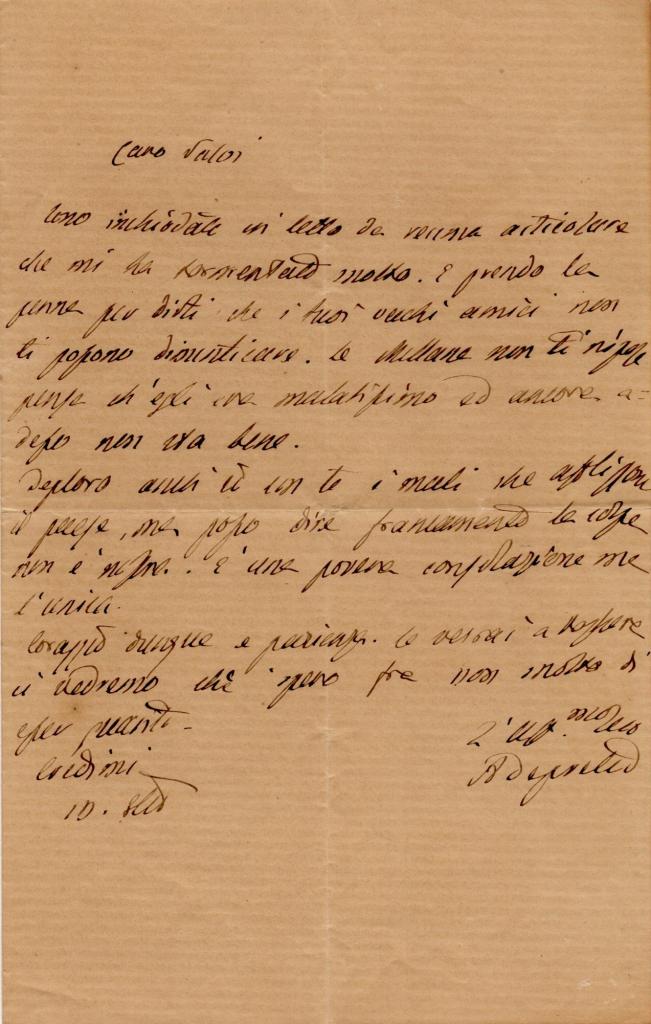 Caro Valsi
Sono inchiodato in letto da reuma articolare
che mi ha tormentato molto. E prendo la
penna per dirti che i tuoi vecchi amici non
ti possono dimenticare. Se non ti rispose
pensa ch'egli era malatissimo ed ancora a=
desso non sta bene.
Deploro anch'io con te i mali che affliggono
il paese, ma posso dire francamente la colpa
non è nostra. È una povera consolazione ma
l'unica.
Coraggio dunque e pazienza. Se verrai a
ci vedremo chè spero fra non molto di
esser guarito.
Credimi
10.
L'aff.mo tuo
ADepretis